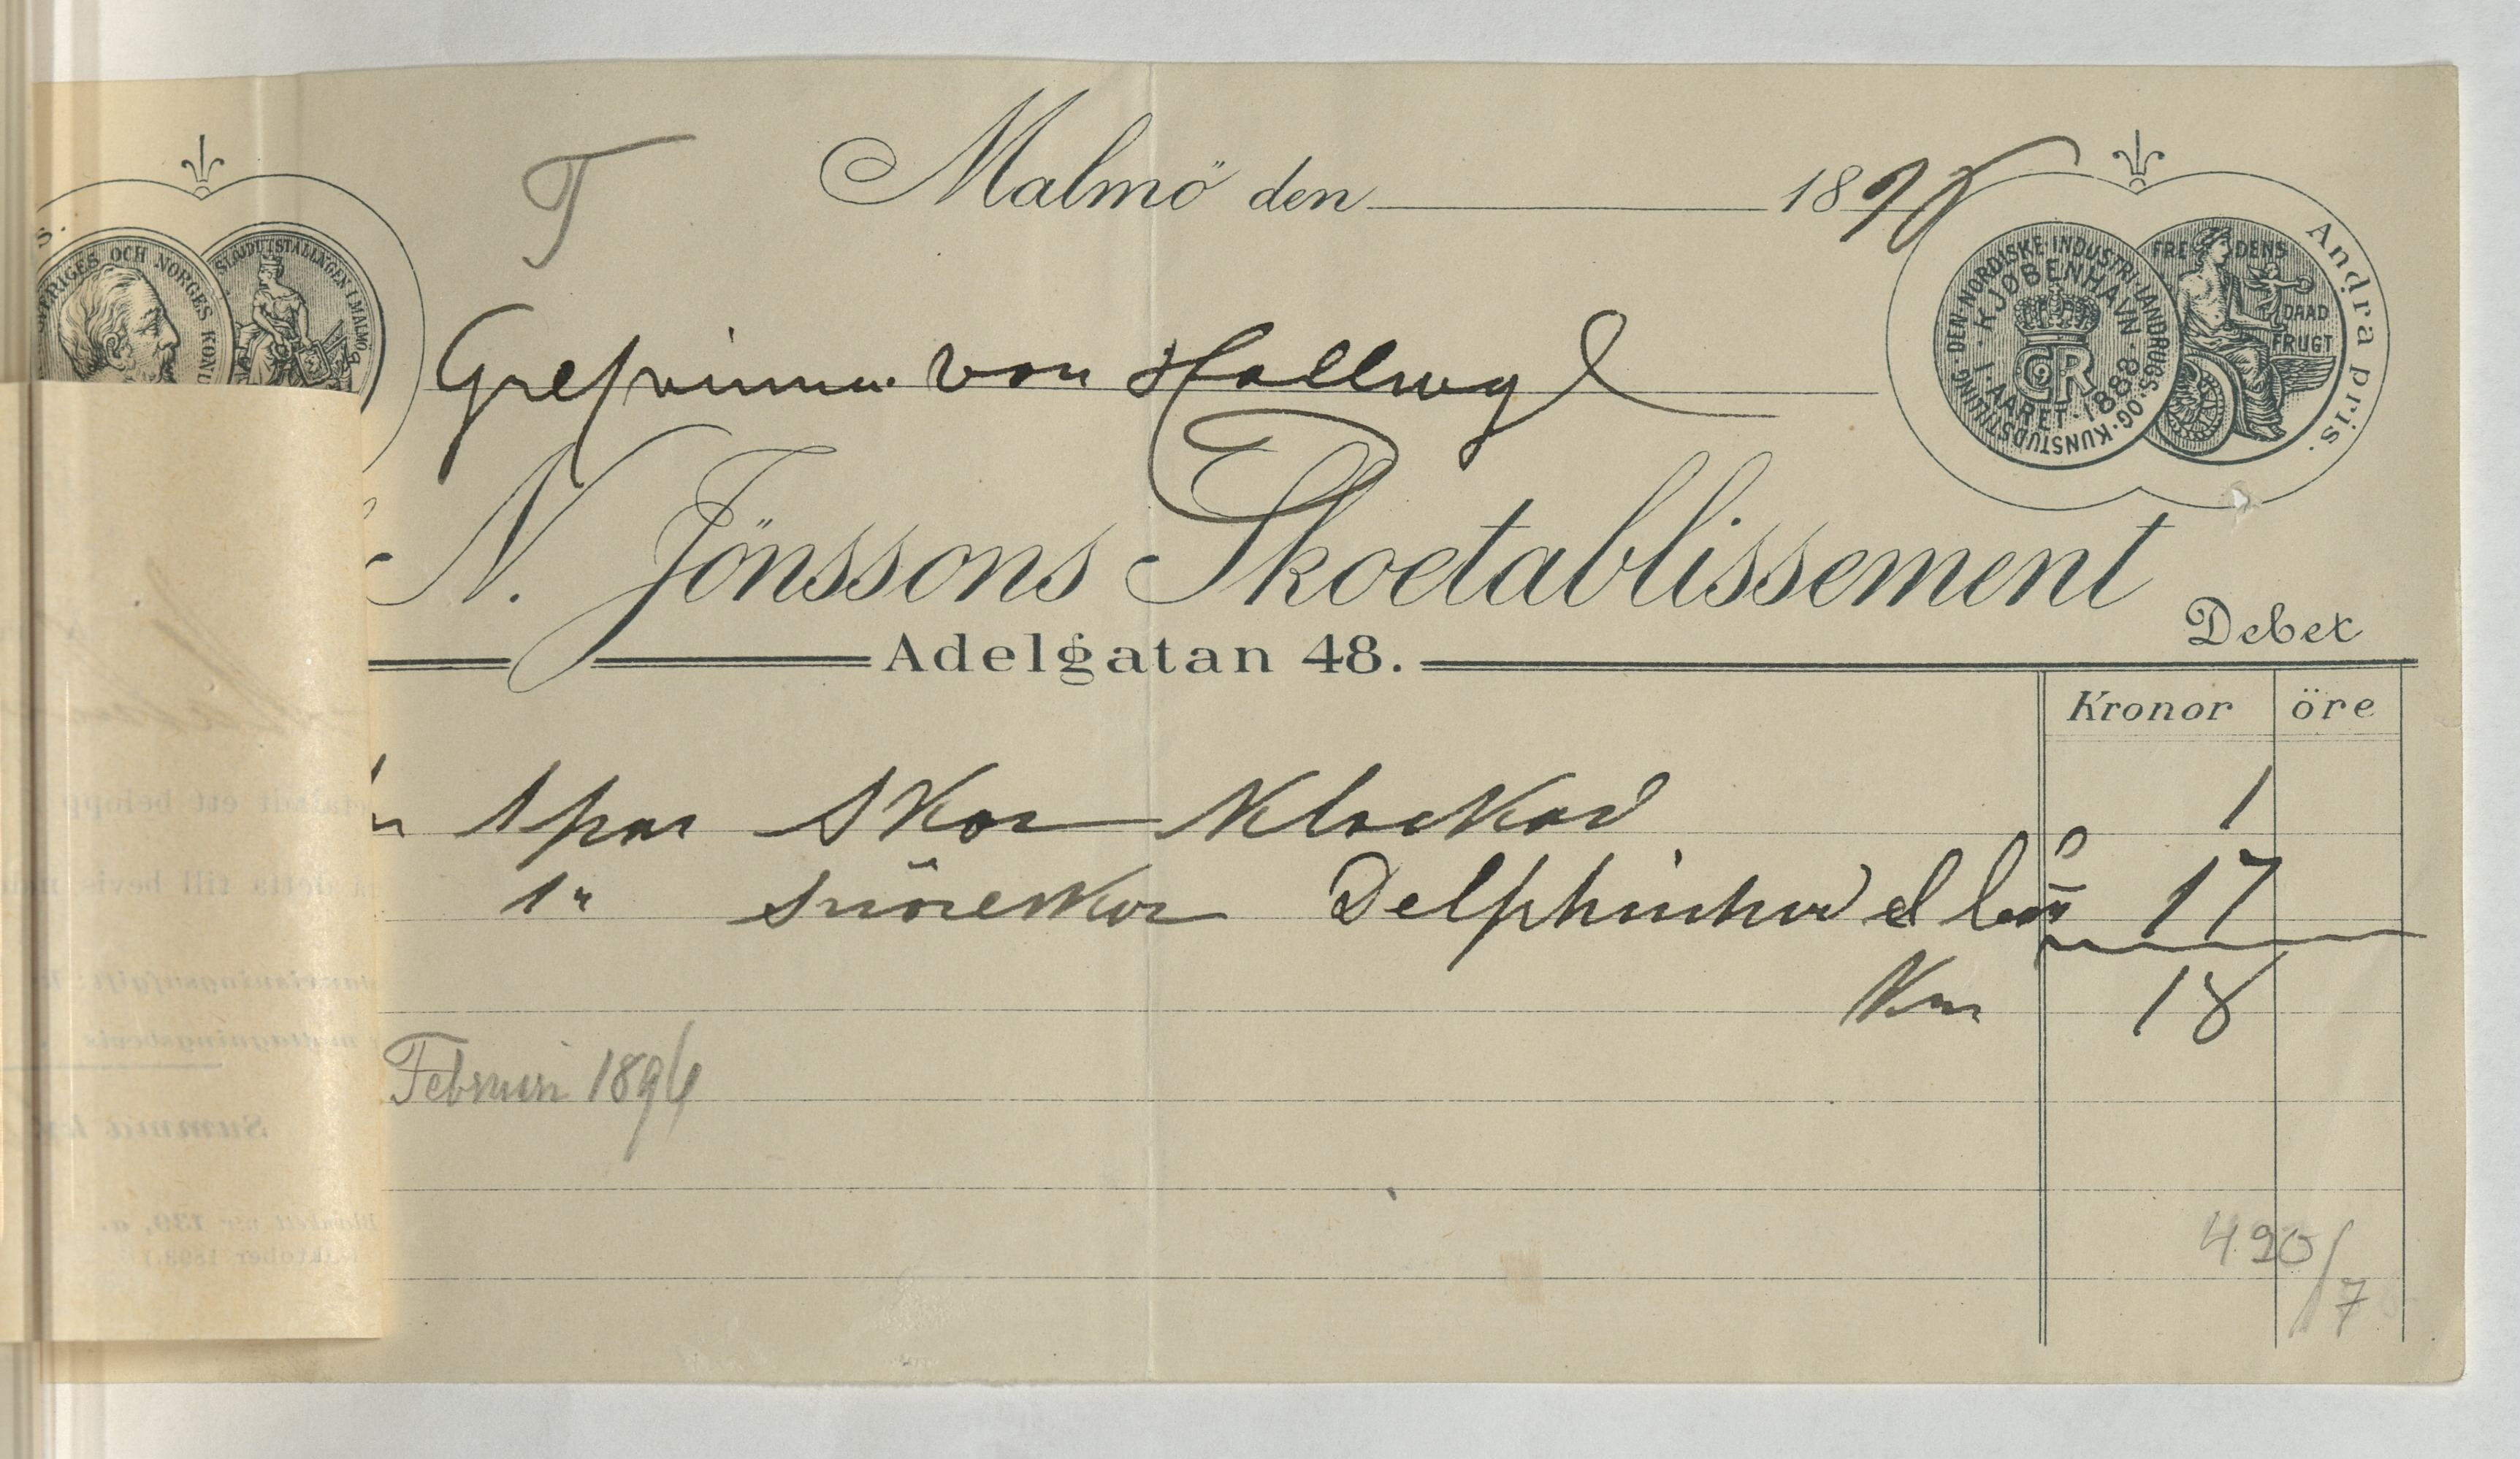 T
Malmö den 189
SVERIGES OCH NORGES KONU
SLÖJDUTSTÄLLNGEN I MALMÖ
DEN NORDISKE INDUSTRI LANDBRUGS OG KUNSTUDSTILLING
KJØBENHAVN
I AARET 1888
FREDENS DAAD
FRUGT
Andra pris.
Grefvinna von Hallwyl
N. Jönssons Skoetablissement
Adelgatan 48.
Debet
Kronor öre
1 par Skor Klackad 1
1 " snöreskor 17
Kr 18
Februari 1896
490/7